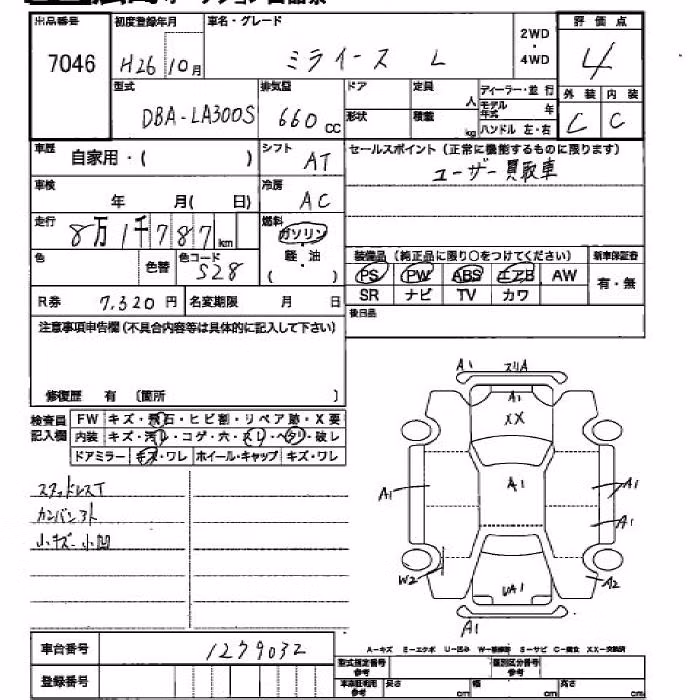 出品番号 初度登録年月 車名・グレード 2WD・4WD 評価点
7046 H26 10月 ミライース L 4
型式 排気量 ドア 定員 人 ディーラー・並行 外装 内装
DBA-LA300S 660cc 形状 積載 kg モデル年式 年 C C
ハンドル 左・右
車歴 自家用・( ) シフト AT セールスポイント(正常に機能するものに限ります)
ユーザー買取車
車検 年 月( 日) 冷房 AC
走行 8万1千787km 燃料 ガソリン
軽・油
( )
色 色替 色コード S28 装備品(純正品に限り○をつけてください) 新車保証書
PS PW ABS エアB AW 有・無
R券 7,320円 名変期限 月 日 SR ナビ TV カワ
注意事項申告欄(不具合内容等は具体的に記入して下さい) 後日品
修復歴 有 〔箇所 〕
検査員記入欄 FW キズ・飛石・ヒビ割・リペア跡・X要
内装 キズ・汚レ・コゲ・穴・スレ・ヘタリ・破レ
ドアミラー キズ・ワレ ホイール・キャップ キズ・ワレ
A1 スリA
A1
XX
A1 A1 A1
A1
W2 A2
UA1
A1
スタッドレスT
カンバン外
小キズ・小凹
車台番号 1279032
A−キズ E−エクボ U−凹み W−補修跡 S−サビ C−腐食 XX−交換済
登録番号 型式指定番号 参考 類別区分番号 参考
車検証有用 参考 長さ cm 幅 cm 高さ cm